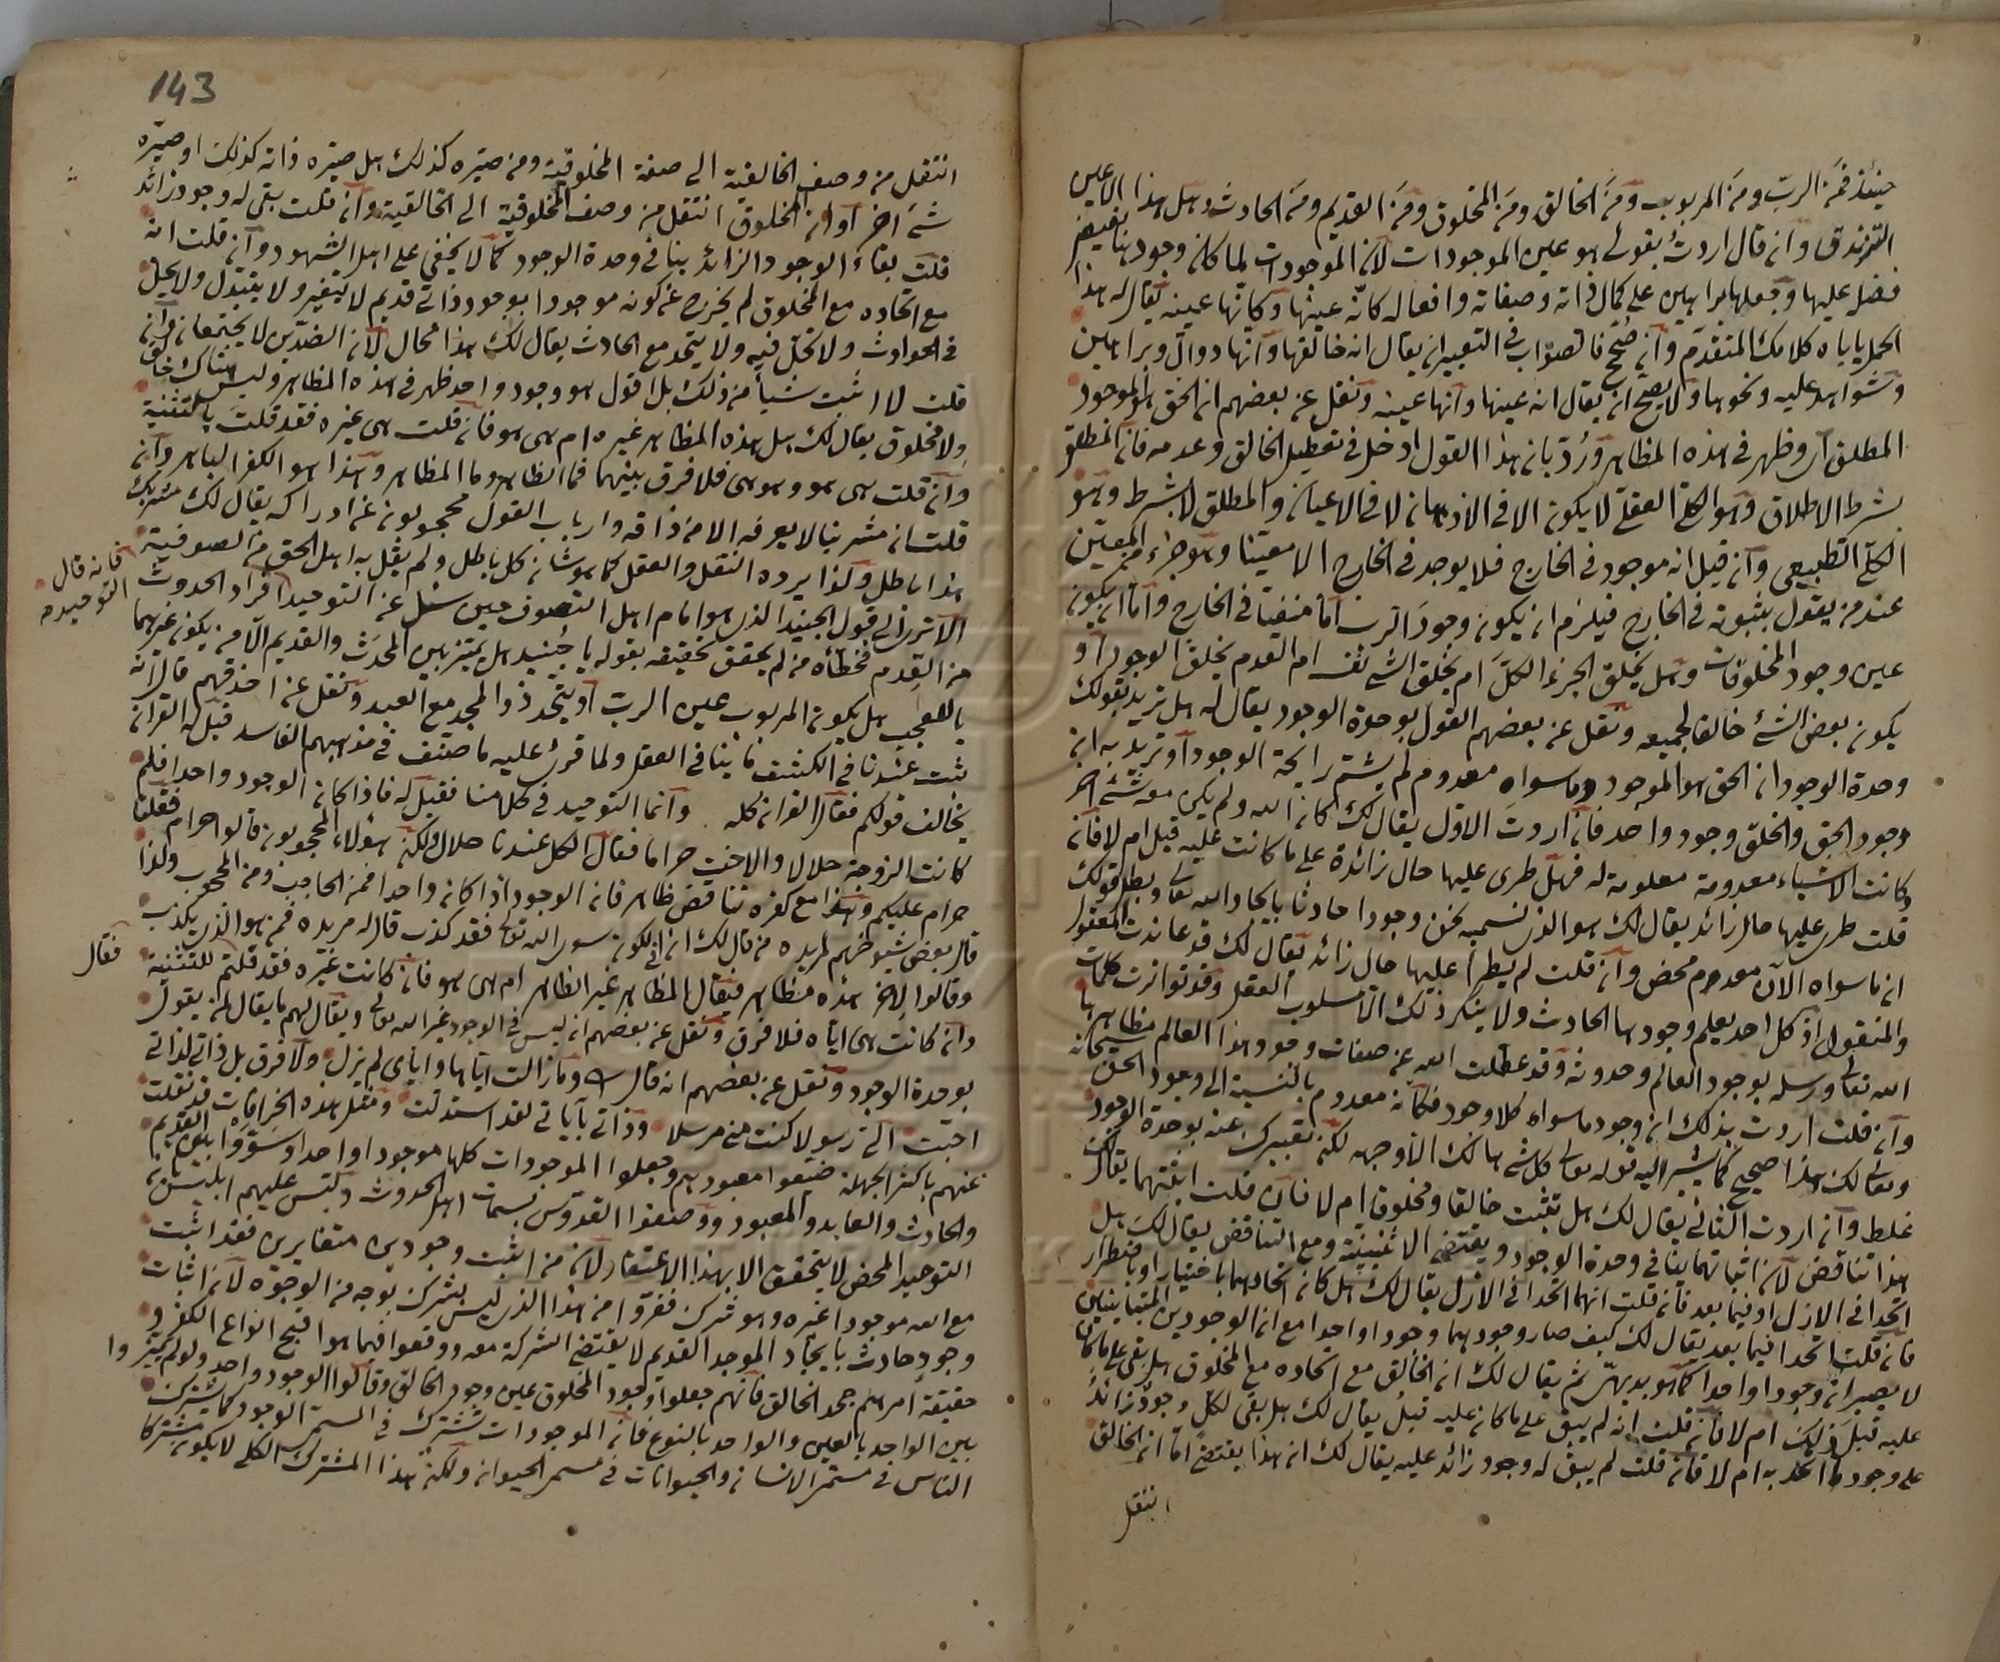 حينئذ فمَن الربّ ومَن المربوب ومَن الخالق ومَن المخلوق ومَن القديم ومَن الحادث وهل هذا الا عين
التزندق وان قال اردتُ بقولى هو عين الموجودات لانّ الموجودات لما كان وجودها بفيض
فضل عليها وجعلها براهين على كمال ذاته وصفاته وافعاله كانّه عينُها وكانّها عينه يقال له هذا
الحمل ياباه كلامك المتقدّم وان صحّ فالصواب فى التعبير ان يقال انه خالقها وانها دوالّ وبراهين
وشواهد عليه ونحوها ولا يصحّ ان يقال انه عينها وانها عينه ونقل عن بعضهم ان الحق هو الموجود
المطلق وظهر فى هذه المظاهر ورُدّ بان هذا القول ادخل فى تعطيل الخالق وعدمه فان المطلق
بشرط الاطلاق وهو الكلىّ العقلىّ لا يكون الا فى الاذهان لا فى الاعيان والمطلق لا بشرط وهو
الكلىّ الطبيعى وان قيل انه موجود فى الخارج فلا يوجد فى الخارج الا معيّنا وهو جزء من المعيّن
عند من يقول بثبوته فى الخارج فيلزم ان يكون وجودَ الرب اما منفيا فى الخارج واما ان يكون
عين وجود المخلوقات وهل يخلق الجزء الكلَّ ام يخلق الشئ نفسه ام العدم يخلق الوجود او
يكون بعض الشئ خالقا لجميعه ونقل عن بعضهم القول بوحدة الوجود يقال له هل تريد بقولك
وحدة الوجود ان الحق هو الموجود وما سواه معدوم لم يشتمّ رايحة الوجود او تريد به انّ
وجود الحق والخلق وجود واحد فان اردت الاول يقال لك كان الله ولم يكن معه شئ اخر
وكانت الاشياء معدومة معلومة له فهل طرى عليها حال زائدة على ما كانت عليه قبل ام لا فان
قلت طرى عليها حال زائد يقال لك هو الذى نسمّيه نحن وجودا حادثا بايجاد الله تعالى وبطل قولك
ان ما سواه الآن معدوم محض وان قلت لم يطرأ عليها حال زائد يقال لك قد عاندت المعقول
والمنقول اذ كل احد يعلم وجودها الحادث ولا ينكر ذلك الا مسلوب العقل وقد تواترت كلمات
الله تعالى ورسله بوجود العالم وحدوثه وقد عطّلت الله عن صفات وجود هذا العالم مظاهرها
وان قلت اردت بذلك ان وجود ما سواه كلا وجود فكانّه معدوم بالنسبة الى وجود الحق سبحانه
وتعالى لك هذا صحيح كما يشير اليه قوله تعالى كل شئ هالك الا وجهه لكن تعبيرك عنه بوحدة الوجود
غلط وان اردت الثانى يقال لك هل تثبت خالقا ومخلوقا ام لا فان قلت اثبتهما يقال لك
هذا تناقض لان اثباتهما ينافى وحدة الوجود ويقتضى الاثنينيّة ومع التناقض يقال لك هل
اتحدا فى الازل او فيما بعد فان قلت انهما اتحدا فى الازل يقال لك هل كان اتحادهما باختيار او باضطرار
فان قلت اتحدا فيما بعد يقال لك كيف صار وجودهما وجودا واحدا مع ان الوجودين المتباينين
لا يصيران وجودا واحدا كما هو بديهىّ ثم يقال لك ان الخالق مع اتحاده مع المخلوق هل بقى على ما كان
عليه قبل ذلك ام لا فان قلت انه لم يبق على ما كان عليه قبلُ يقال لك هل بقى لكلّ وجودٌ زائدٌ
على وجود ما اتحد به ام لا فان قلت لم يبق له وجود زائد عليه يقال لك ان هذا يقتضى اما ان الخالق
انتقل
143
انتقل من وصف الخالقية الى صفة المخلوقيّة ومن صيّره كذلك هل صيّره ذاته كذلك او صيّره
شئ اخر او ان المخلوق انتقل من وصف المخلوقيّة الى الخالقية وان قلت بقى له وجود زائد
قلت بقاء الوجود الزائد ينافى وحدة الوجود كما لا يخفى على اهل الشهود وان قلت انه
مع اتحاده مع المخلوق لم يخرج عن كونه موجودا بوجود ذاتى قديم لا يتغير ولا يتبدّل ولا يحلّ
فى الحوادث ولا تحلّ فيه ولا يتحد مع الحادث يقال لك هذا محال لان الضدّين لا يجتمعان وان
قلت لا اثبت شيأ من ذلك بل اقول هو وجود واحد ظهر فى هذه المظاهر وليس هناك خالق
ولا مخلوق يقال لك هل هذه المظاهر غيره ام هى هو فان قلت هى غيره فقد قلتَ بالتثنية
وان قلت هى هو وهو هى فلا فرق بينهما فما الظاهر وما المظاهر وهذا هو الكفر الباهر وان
قلت ان مشربنا لا يعرفه الا من ذاقه وارباب القول محجوبون عن ادراكه يقال لك مشربك
هذا باطل ولذا يرده النقل والعقل كما هو شان كل باطل ولم يقل به اهل الحق من الصوفية
الا ترى الى قول الجنيد الذى هو امام اهل التصوف حين سئل عن التوحيد افراد الحدوث
فانه قال
التوحيد
من القِدم فخطّأه من لم يحقق تحقيقه بقوله يا جُنيد هل يميّز بين المحدَث والقديم الا من يكون غيرهما
يا للعجب هل يكون المربوب عين الربّ او يتحد ذو المجد مع العبد ونقل عن احذقهم قال انه
ثبت عندنا فى الكشف ما ينافى العقل ولما قرئ عليه ما صنّف فى مذهبهم الفاسد قيل له القرآن
يخالف قولكم فقال القرآن كله وانما التوحيد فى كلامنا فقيل له فاذا كان الوجود واحدا فلم
كانت الزوجة حلالا والاخت حراما فقال الكل عندنا حلال ولكن هؤلاء المحجوبون قالوا حرام فقلنا
حرام عليكم وهذا مع كفره تناقض ظاهر فانه الوجود اذا كان واحدا فمن الحاجب ومن المحجوب ولذا
قال بعض شيوخهم لمريده من قال لك ان فى الكون سوى الله تعالى فقد كذب قال له مريده فمن هو الذى يكذب
وقالوا لاخر هذه مظاهر فقال المظاهر غير الظاهر ام هى هو فان كانت غيره فقد قلتم للتثنية
فقال
وان كانت هى اياه فلا فرق ونقل عن بعضهم انه ليس فى الوجود غير الله تعالى ويقال لهم ما يقال لمن يقول
بوحدة الوجود ونقل عن بعضهم انه قال وما زالت اياها واياى لم تزل ولا فرق بل ذاتى لذاتى
احبّت الىّ رسولا كنت منى مرسلا وذاتى بآياتى لقد استدلّت ومثل هذه الخرافات قد نقلت
عنهم باكثر الجهلة ضيّعوا معبودهم وجعلوا الموجودات كلها موجودا واحدا وسَوّوا بين القديم
والحادث والعابد والمعبود ووصفوا القدّوس بسمات اهل الحدوث ولبّس عليهم ابليس بان
التوحيد المحض لا يتحقق الا بهذا الاعتقاد لان من اثبت وجودين متغايرين فقد اثبت
مع الله موجودا غيره وهو شرك ففرّوا من هذا الذى ليس بشرك بوجه من الوجوه لان اثبات
وجود حادث بايجاد الموجد القديم لا يقتضى الشركة معه ووقعوا فيما هو اقبح انواع الكفر و
حقيقة امرهم جحد الخالق فانهم جعلوا وجود المخلوق عين وجود الخالق وقالوا الوجود واحد ولم يميّزوا
بين الواحد بالعين والواحد بالنوع فان الموجودات تشترك فى المسمى الوجود كما يشترك
الناس فى مسمّى الانسان والحيوانات فى مسمى الحيوان ولكن هذا المشترك الكلى لا يكون مشتركا